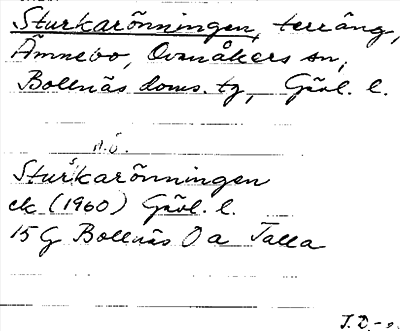 Sturkarönningen, terräng,
Ämnebo, Ovanåkers sn,
Bollnäs doms. tg, Gävl. l.
n.ö.
Sturkarönningen
ek (1960) Gävl. l.
15 G Bollnäs 0 a Talla
J.D.